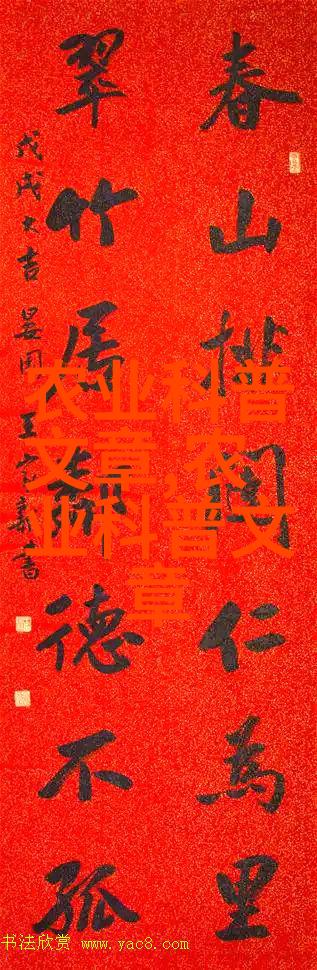 春山排闥仁為里
翠竹為鄰德不孤
戊戌大吉 晏园 王守義書
农业科普
文章,农
业科普文
章
书法欣赏 www.yac8.com